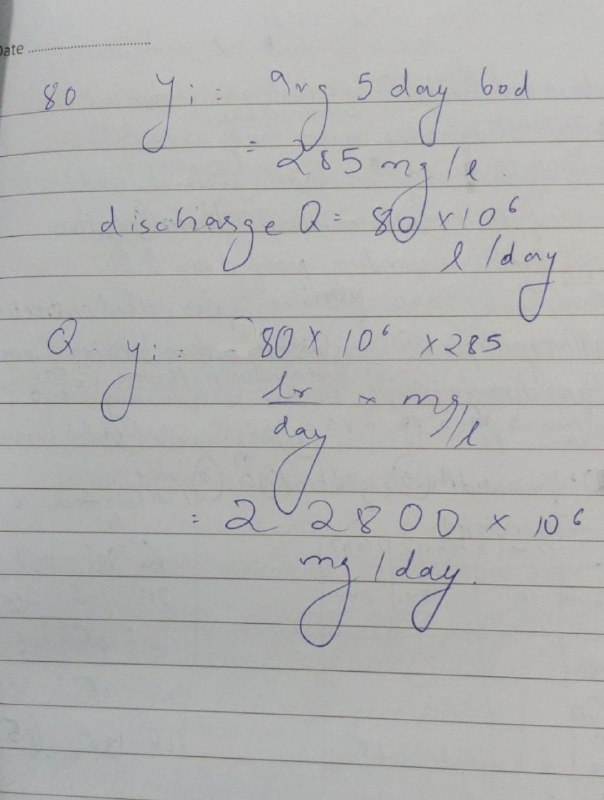 Date
80 yi = Avg 5 day bod
= 285 mg/l.
discharge Q = 80 × 10⁶
l/day
Q. yi = 80 × 10⁶ × 285
lr/day × mg/l
= 22800 × 10⁶
mg/day.